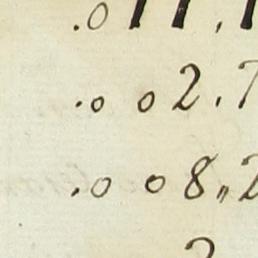 .0 11.1
.0 02.7
.0 08,,2
2